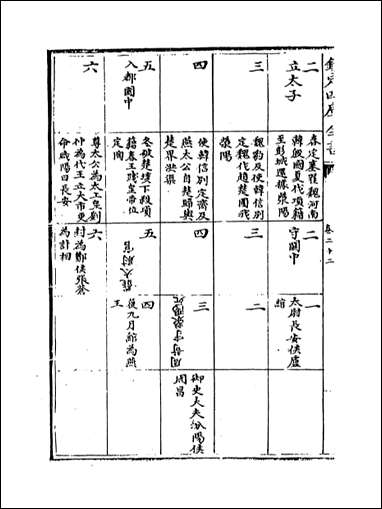 欽定四庫全書
卷二十二
二
立太子
春定塞翟魏河南
韓殷國夏伐項籍
至彭城還據滎陽
二
守關中
一
太尉長安侯盧
綰
三
魏豹反使韓信別
定魏伐趙楚圍我
滎陽
三
二
四
使韓信別定齊及
燕太公自楚歸與
楚界洪渠
四
三
周苛守滎陽死
御史大夫汾陽侯
周昌
五
入都關中
冬破楚垓下殺項
籍春王踐皇帝位
定陶
五
罷太尉官
四
後九月綰為燕
王
六
尊太公為太上皇劉
仲為代王立大市更
命咸陽曰長安
六
封為酇侯張蒼
為計相